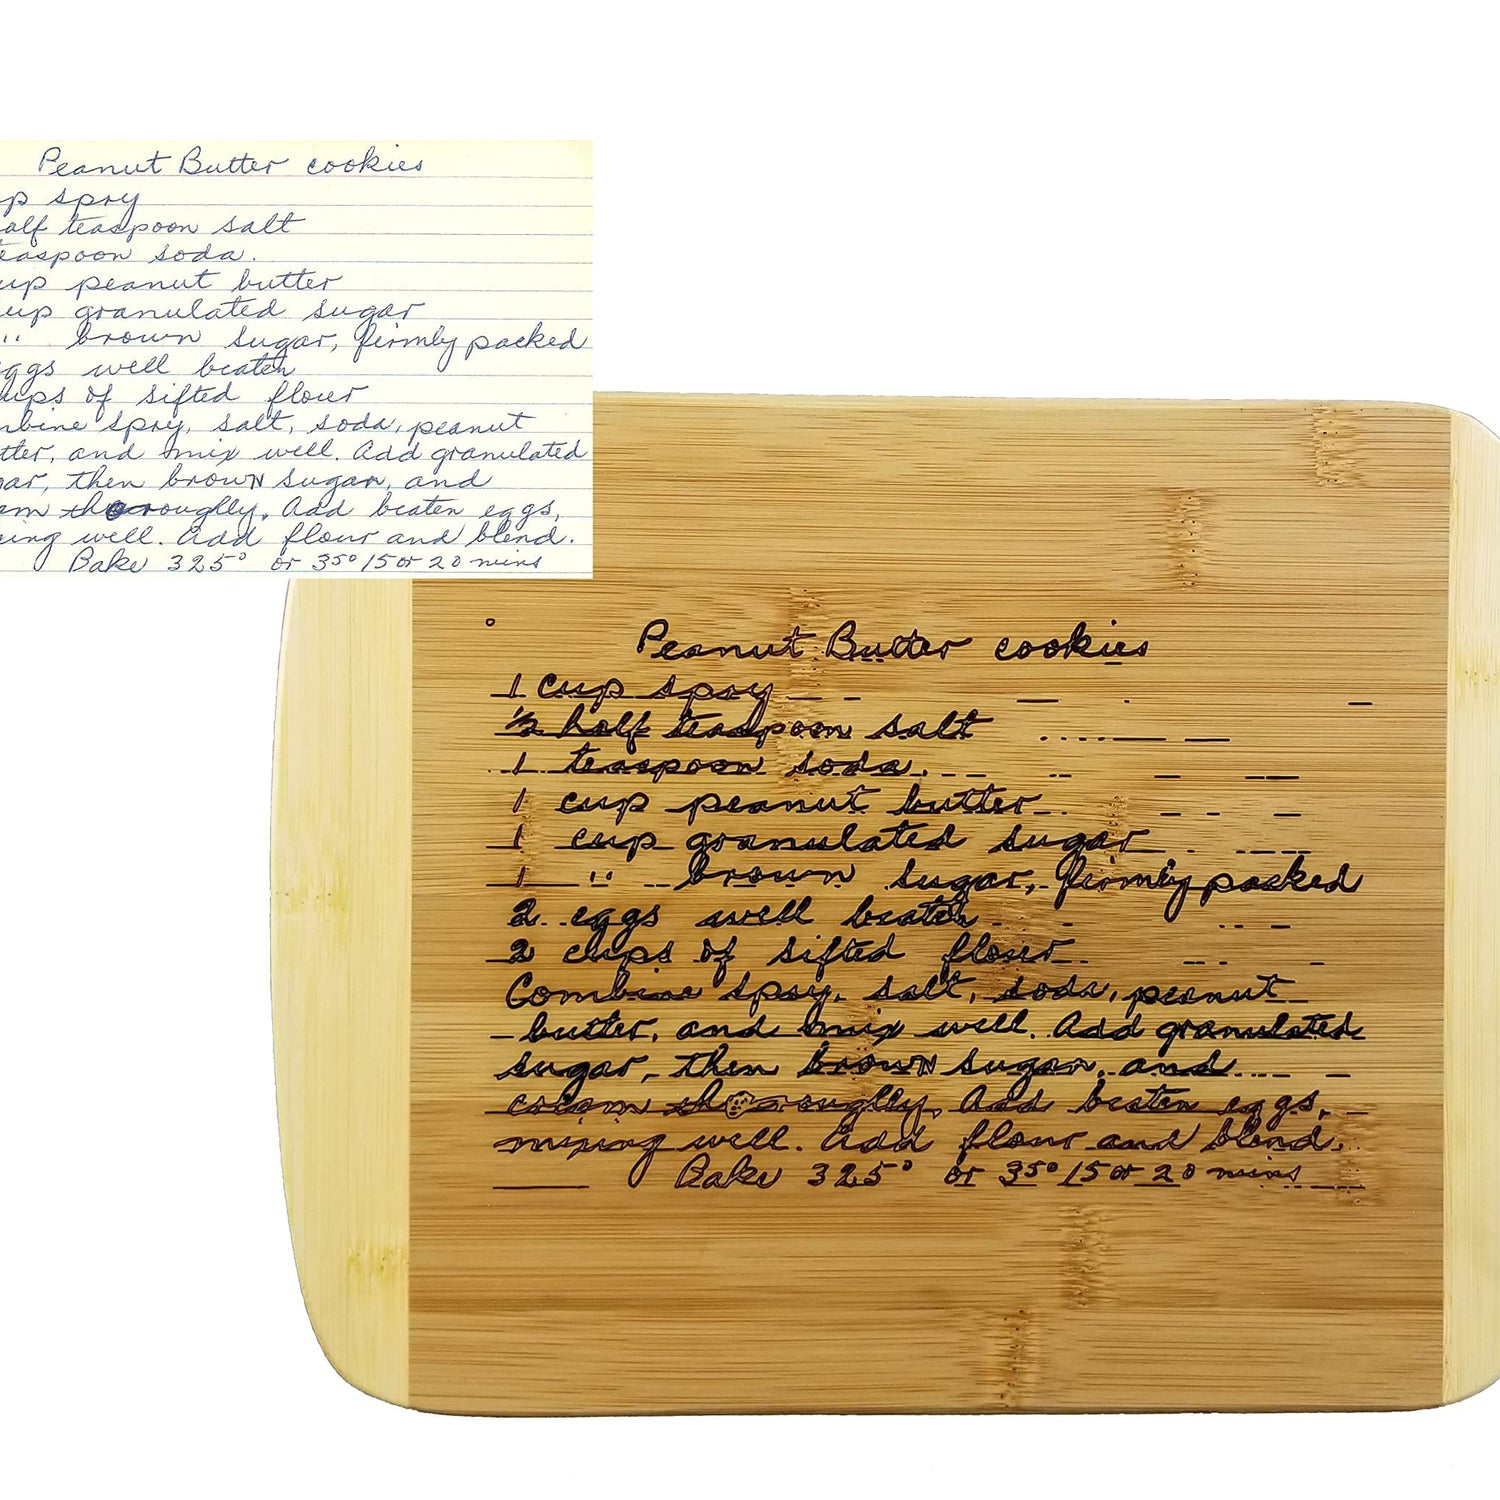 Peanut Butter cookies
up spry
alf teaspoon salt
easpoon soda.
up peanut butter
up granulated sugar
" brown sugar, firmly packed
ggs well beaten
ups of sifted flour
mbine spry, salt, soda, peanut
tter, and mix well. Add granulated
gar, then brown sugar, and
am thoroughly. Add beaten eggs,
xing well. Add flour and blend.
Bake 325° or 35° 15 or 20 mins
Peanut Butter cookies
1 cup spry
1/2 half teaspoon salt
1 teaspoon soda.
1 cup peanut butter
1 cup granulated sugar
1 " brown sugar, firmly packed
2 eggs well beaten
2 cups of sifted flour
Combine spry, salt, soda, peanut
butter, and mix well. Add granulated
sugar, then brown sugar, and
cream thoroughly. Add beaten eggs,
mixing well. Add flour and blend.
Bake 325° or 35° 15 or 20 mins